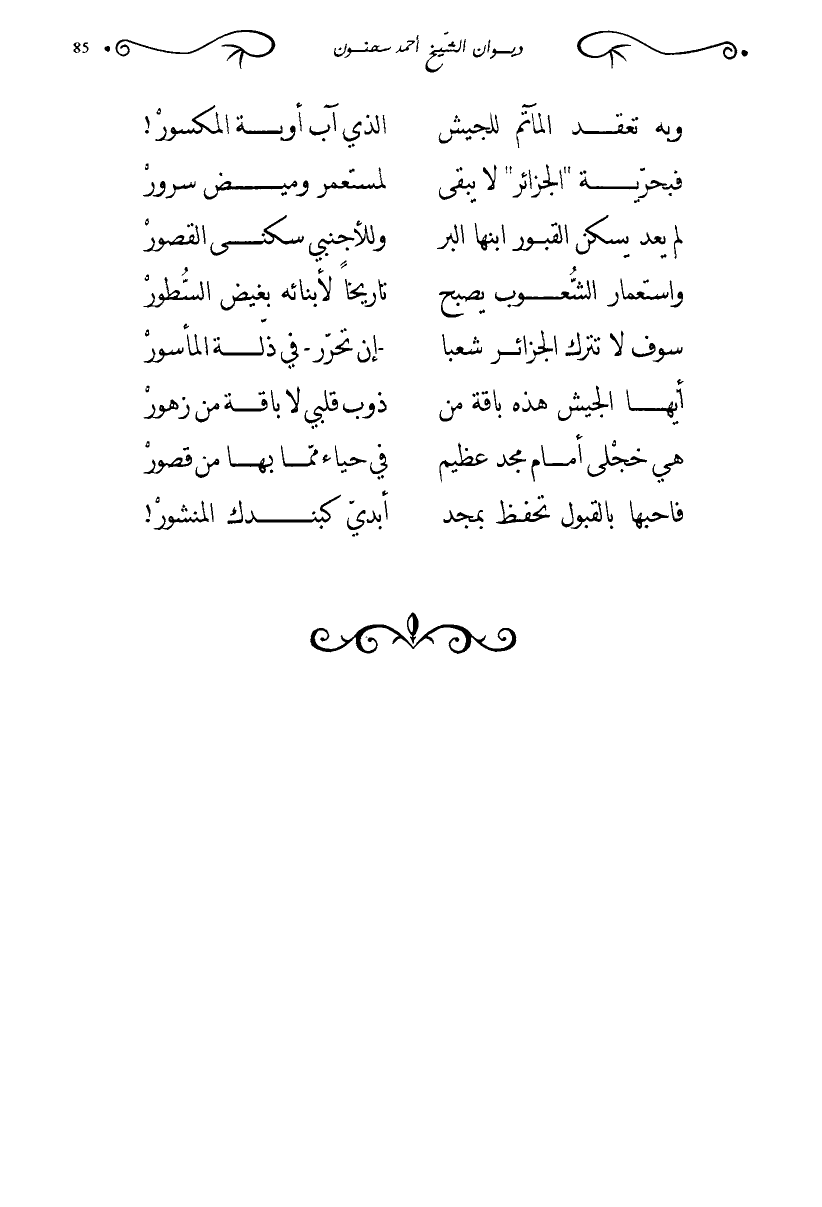 ديوان الشّيخ أحمد سحنون 85
وبه تعقد المآتم للجيش الذي آب أوبة المكسورْ!
فبحرّية "الجزائر" لا يبقى لمستعمر وميض سرورْ
لم يعد يسكن القبور ابنها البر وللأجنبي سكنى القصورْ
واستعمار الشُّعوب يصبح تاريخاً لأبنائه بغيض السُّطورْ
سوف لا تترك الجزائر شعبا -إن تحرّر- في ذلّة المأسورْ
أيها الجيش هذه باقة من ذوب قلبي لا باقة من زهورْ
هي خجْلى أمام مجد عظيم في حياء ممّا بها من قصورْ
فاحبها بالقبول تحفظ بمجد أبديّ كبندك المنشورْ!